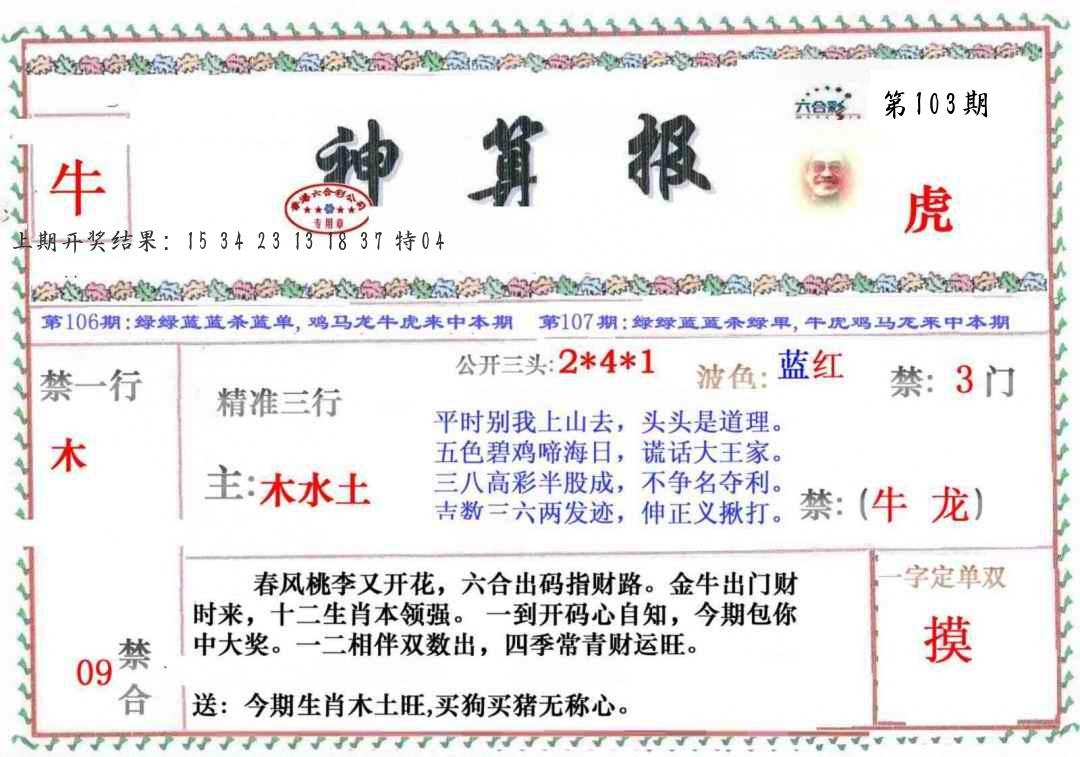 六合彩
第103期
神算报
牛
香港六合彩公司
专用章
虎
上期开奖结果：15 34 23 13 18 37 特04
第106期:绿绿蓝蓝杀蓝单,鸡马龙牛虎来中本期 第107期:绿绿蓝蓝杀绿单,牛虎鸡马龙来中本期
禁一行
木
精准三行
主:木水土
公开三头:2*4*1
波色:蓝红
禁:3门
平时别我上山去，头头是道理。
五色碧鸡啼海日，谎话大王家。
三八高彩半股成，不争名夺利。
吉数三六两发迹，伸正义揪打。
禁:(牛 龙)
春风桃李又开花，六合出码指财路。金牛出门财
时来，十二生肖本领强。一到开码心自知，今期包你
中大奖。一二相伴双数出，四季常青财运旺。
送：今期生肖木土旺,买狗买猪无称心。
09
禁合
一字定单双
摸